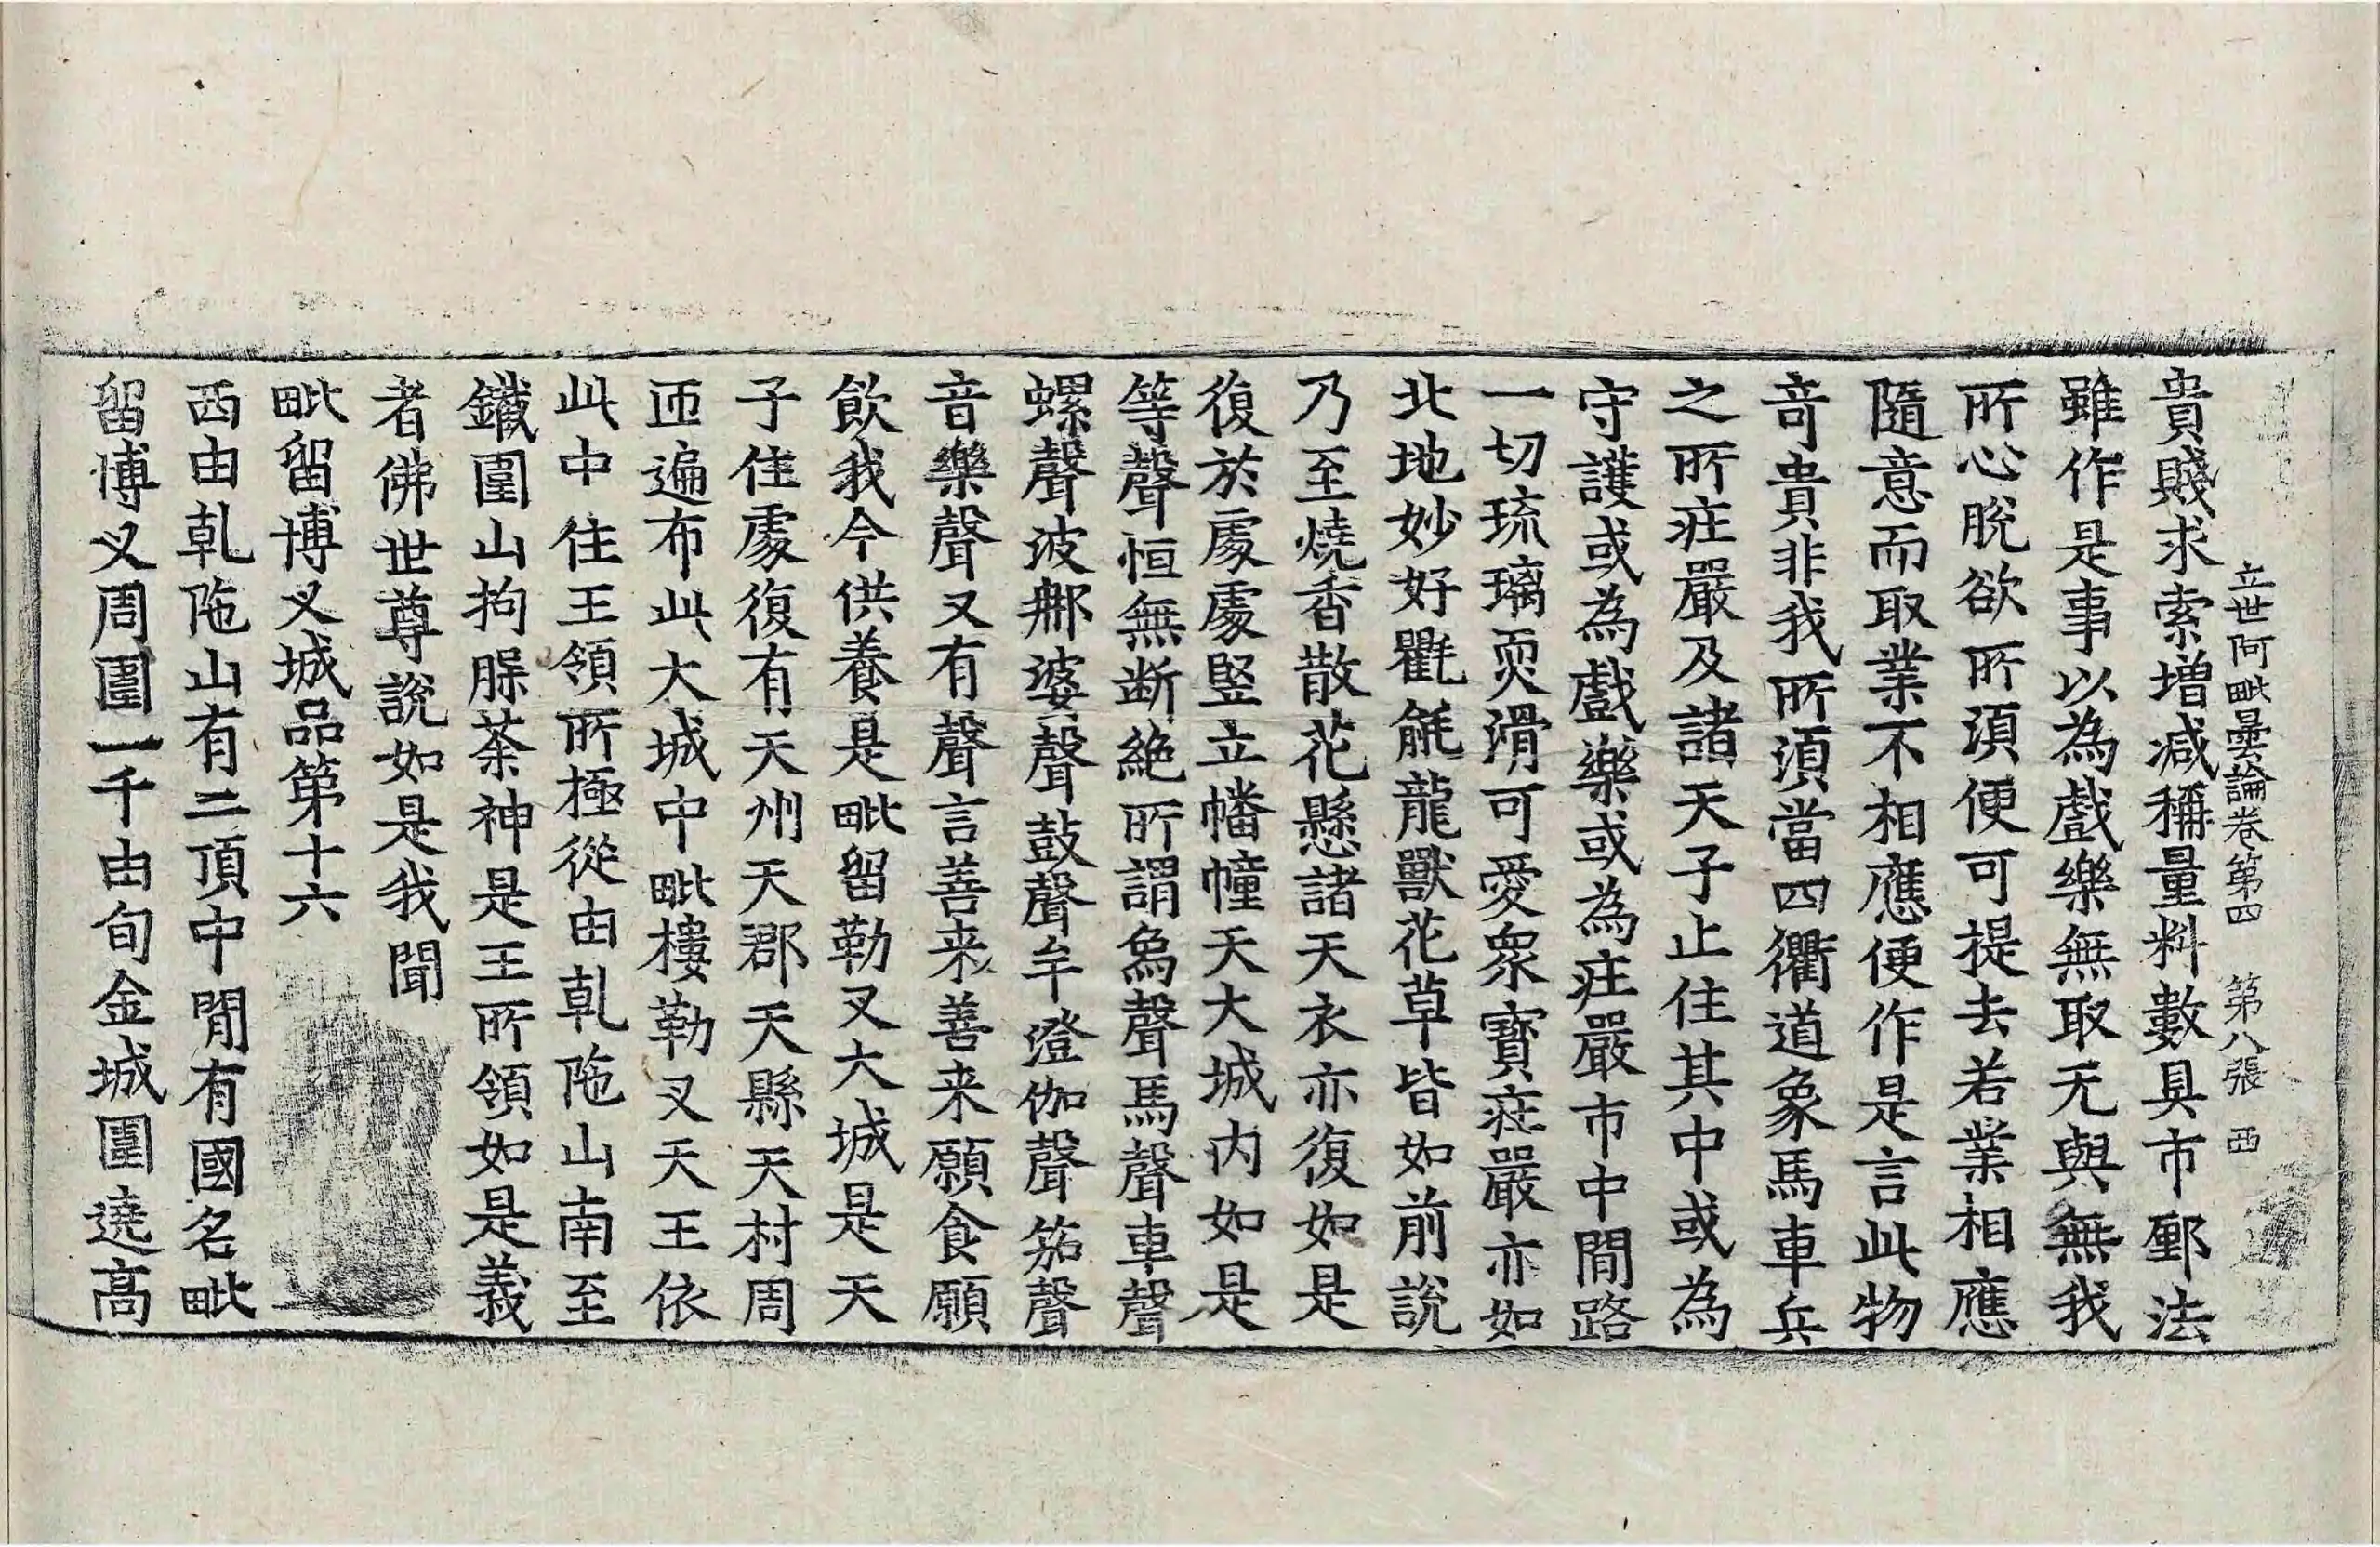 立世阿毗曇論卷第四 第八張 西
貴賤求索增減稱量料數具市郵法
雖作是事以為戲樂無取无與無我
所心脫欲所湏便可提去若業相應
隨意而取業不相應便作是言此物
竒貴非我所湏當四衢道象馬車兵
之所莊嚴及諸天子止住其中或為
守護或為戲樂或為莊嚴市中閒路
一切琉璃耎滑可愛衆寶莊嚴亦如
北地妙好氍毹龍獸花草皆如前說
乃至燒香散花懸諸天衣亦復如是
復於處處竪立幡幢天大城内如是
等聲恒無断絶所謂象聲馬聲車聲
螺聲波那婆聲鼓聲牟澄伽聲笳聲
音樂聲又有聲言善来善来願食願
飲我今供養是毗留勒叉大城是天
子住處復有天州天郡天縣天村周
迊遍布此大城中毗樓勒叉天王依
此中住王領所極從由乹陁山南至
鐵圍山拘羅荼神是王所領如是義
者佛世尊說如是我聞
毗留博叉城品第十六
西由乹陁山有二頂中閒有國名毗
留博叉周圍一千由旬金城圍遶高